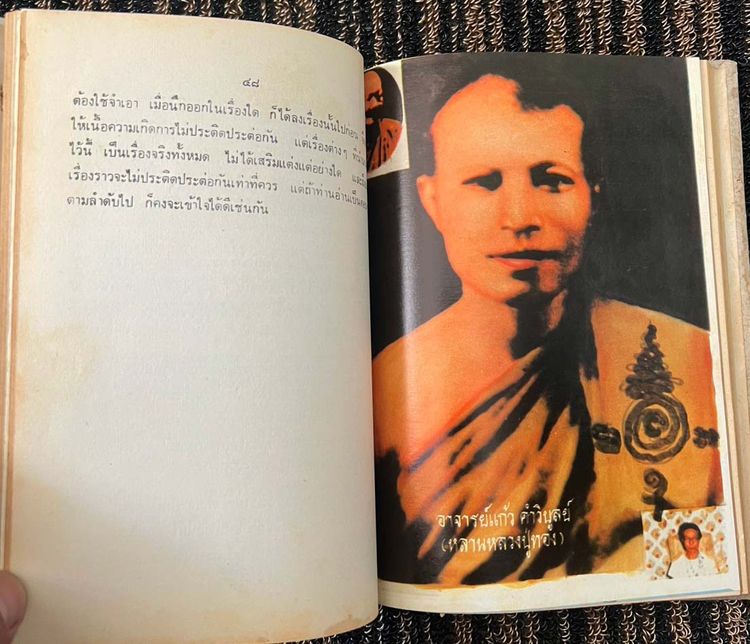 ๔๘
ต้องใช้จำเอา เมื่อนึกออกในเรื่องใด ก็ได้ลงเรื่องนั้นไปก่อน
ให้เนื้อความเกิดการไม่ประติดประต่อกัน แต่เรื่องต่างๆ
ไว้นี้ เป็นเรื่องจริงทั้งหมด ไม่ได้เสริมแต่งแต่อย่างใด
เรื่องราวจะไม่ประติดประต่อกันเท่าที่ควร แต่ถ้าท่านอ่าน
ตามลำดับไป ก็คงจะเข้าใจได้ดีเช่นกัน
อาจารย์แก้ว คำวิบูลย์
(หลานหลวงปู่ทอง)